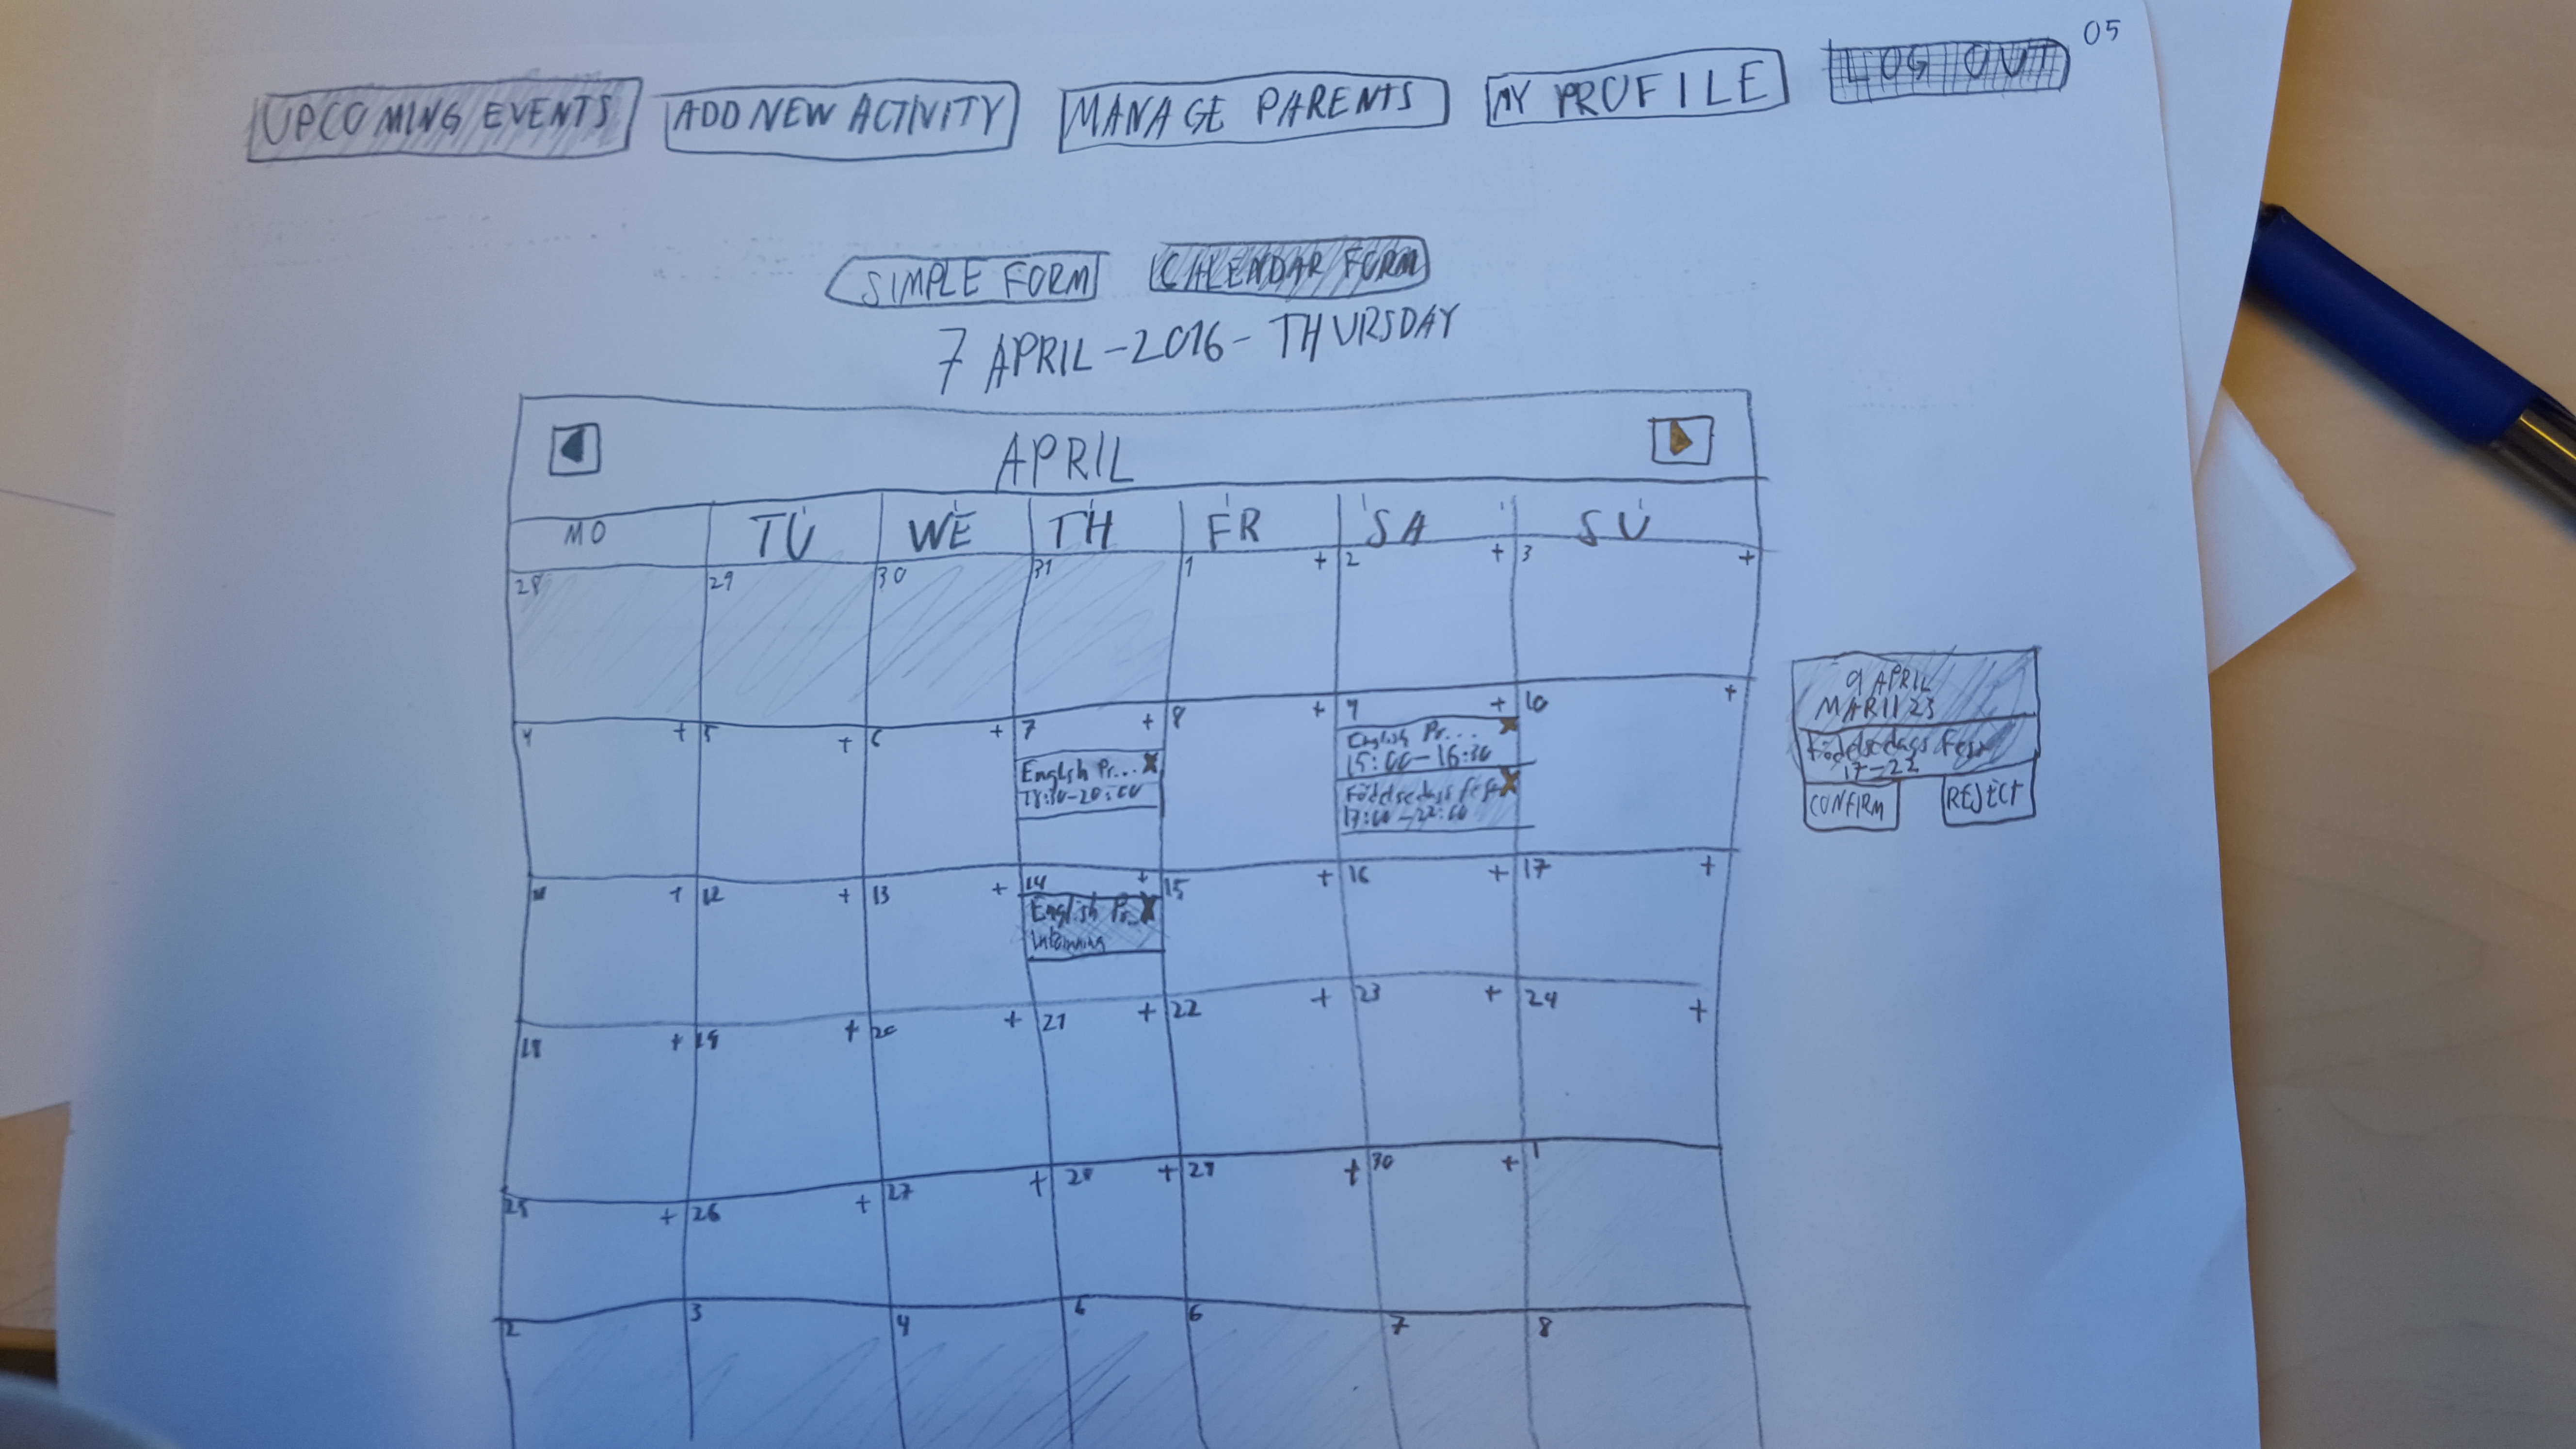 05
UPCOMING EVENTS ADD NEW ACTIVITY MANAGE PARENTS MY PROFILE LOG OUT
SIMPLE FORM CALENDAR FORM
7 APRIL - 2016 - THURSDAY
APRIL
MO TU WE TH FR SA SU
28 29 30 31 1 + 2 + 3 +
4 + 5 + 6 + 7 + 8 + 9 + 10 +
English Pr... X
18:30-20:00
English Pr... X
15:00-16:30
Födelsedags fest X
17:00-22:00
11 + 12 + 13 + 14 + 15 + 16 + 17 +
English Pr. X
18 + 19 + 20 + 21 + 22 + 23 + 24 +
25 + 26 + 27 + 28 + 29 + 30 + 1
2 3 4 6 7 8
9 APRIL
Födelsedags fest
CONFIRM REJECT